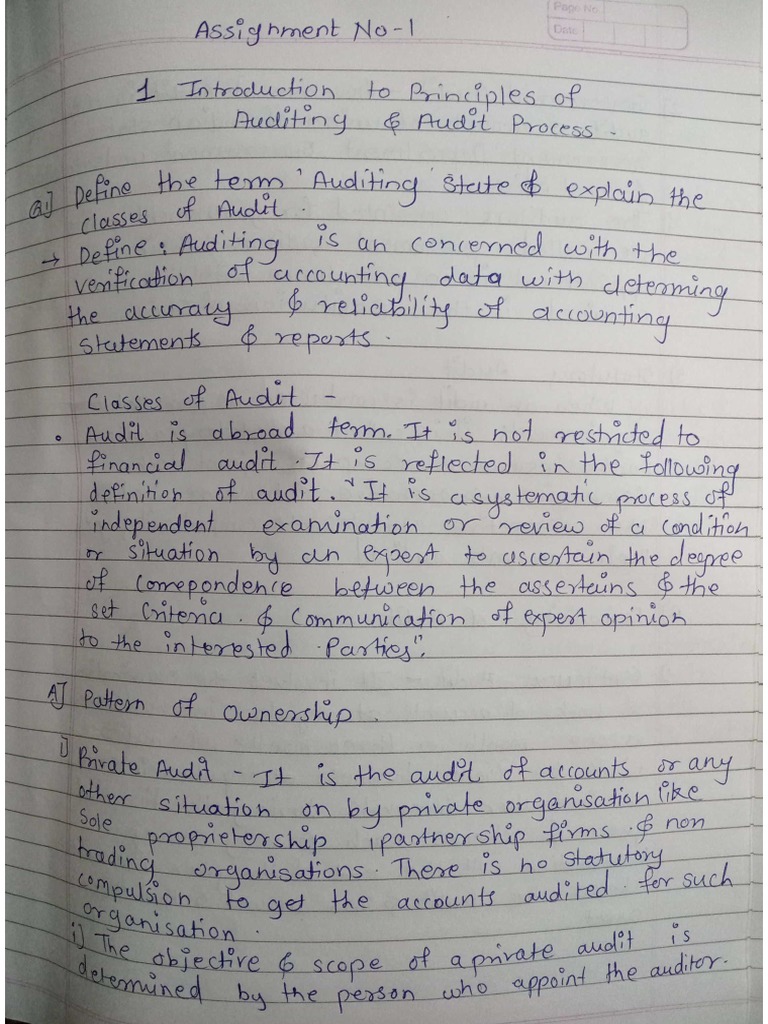 Page No.
Date
Assignment No-1
1 Introduction to Principles of
Auditing & Audit Process.
Q1] Define the term 'Auditing' State & explain the
classes of Audit.
→ Define: Auditing is an concerned with the
verification of accounting data with determing
the accuracy & reliability of accounting
statements & reports.
Classes of Audit -
• Audit is abroad term. It is not restricted to
financial audit. It is reflected in the following
definition of audit. "It is a systematic process of
independent examination or review of a condition
or situation by an expert to ascertain the degree
of correpondence between the assertains & the
set Criteria. & Communication of expert opinion
to the interested Parties".
A] Pattern of Ownership.
i) Private Audit - It is the audit of accounts or any
other situation on by private organisation like
Sole proprietership, partnership firms & non
trading organisations. There is no Statutory
compulsion to get the accounts audited for such
organisation.
i) The objective & scope of a private audit is
determined by the person who appoint the auditor.